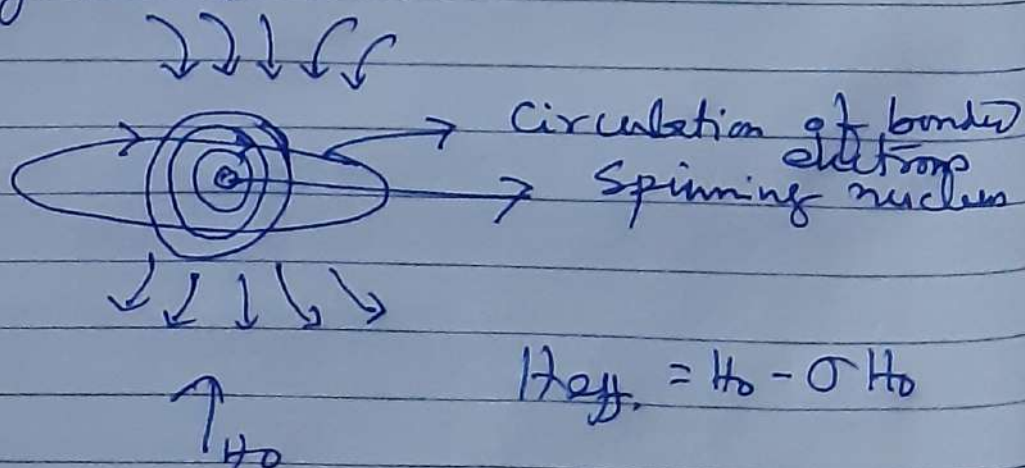 Circulation of bonded
electrons
Spinning nucleus
Heff. = H₀ - σ H₀
H₀